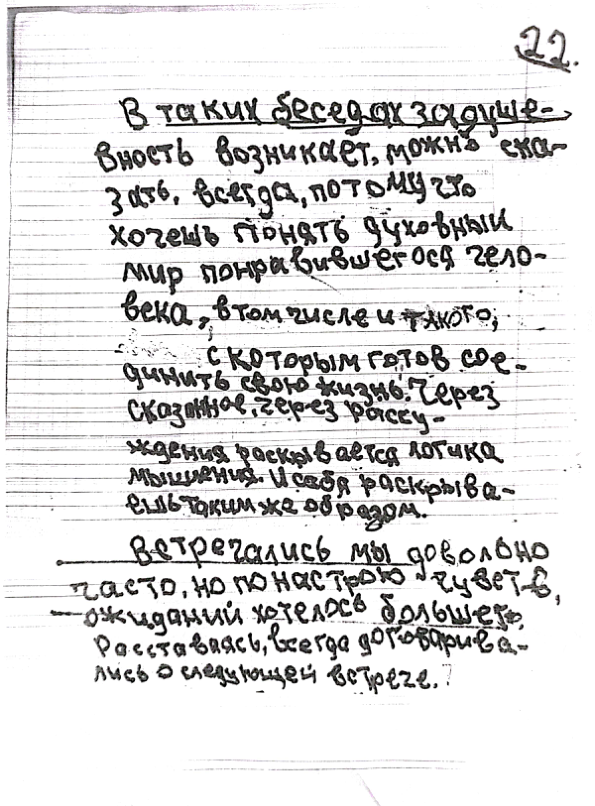 22.
В таких беседах задуше-
вность возникает, можно ска-
зать, всегда, потому что
хочешь понять духовный
мир понравившегося чело-
века, в том числе и такого,
с которым готов сое-
динить свою жизнь. Через
сказанное, через рассу-
ждения раскрывается логика
мышления. И себя раскрыва-
ешь таким же образом.
Встречались мы довольно
часто, но по настрою чувств,
ожиданий хотелось большего.
Расставаясь, всегда договарива-
лись о следующей встрече.